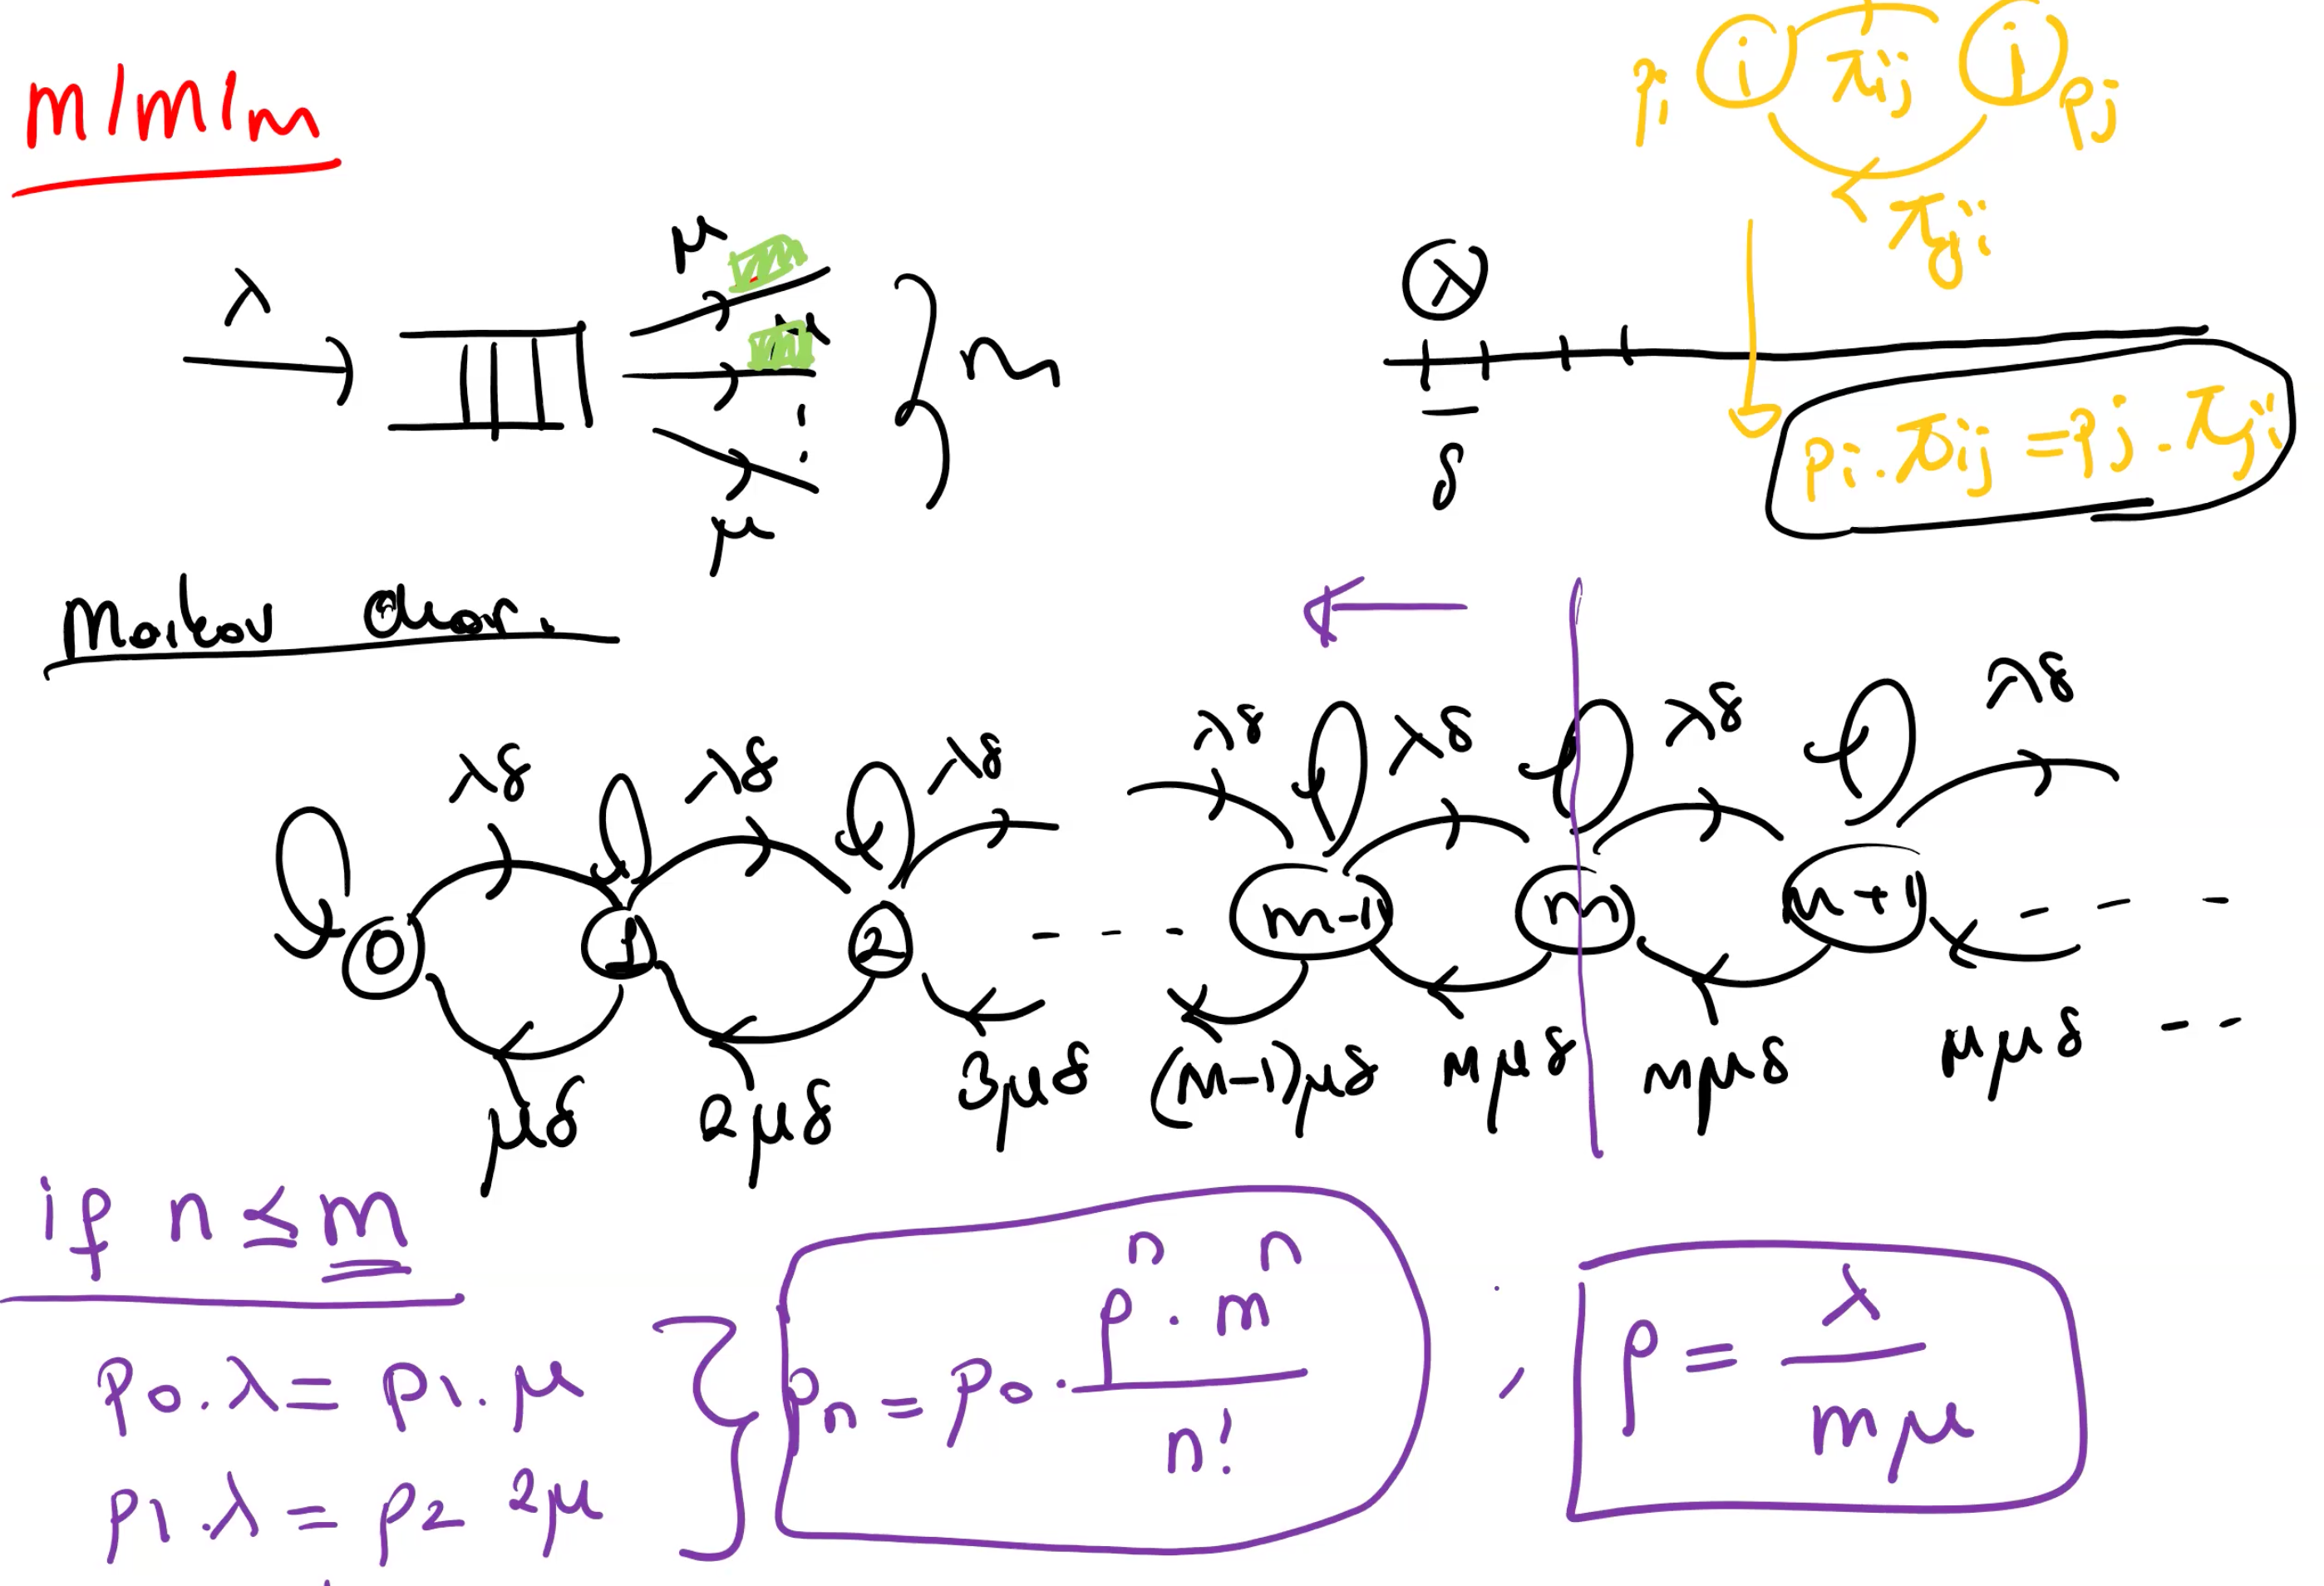 M/M/m
pi i πij j pj
πji
λ μ
μ
μ
m
λ
δ
pi.πij = pj.πji
Markov Chain.
λδ λδ λδ λδ λδ λδ λδ
0 1 2 - - - - m-1 m m+1 - - - -
μδ 2μδ 3μδ (m-1)μδ mμδ mμδ mμδ - -
if n ≤ m
p0.λ = p1.μ
p1.λ = p2 2μ
pn = p0. ρ^n . m^n / n! ,
ρ = λ / mμ